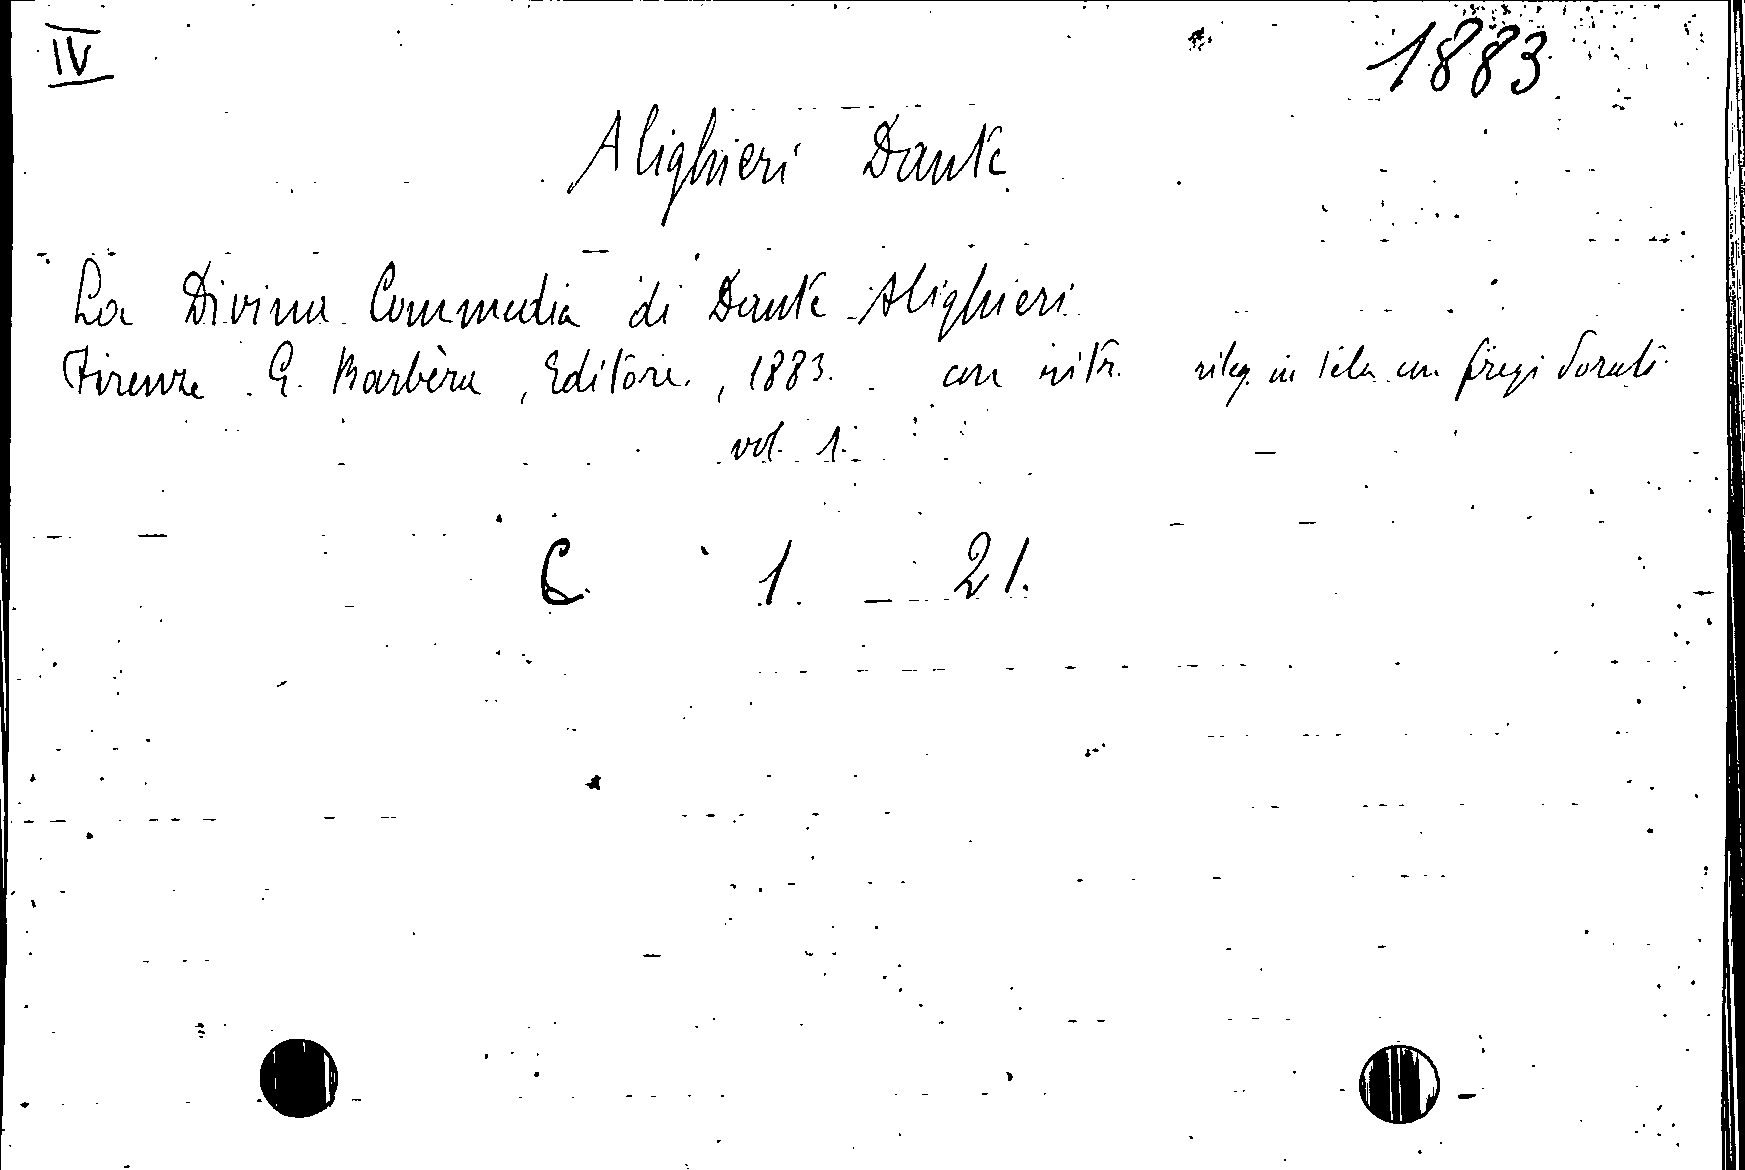 IV
1883
Alighieri Dante
La Divina Commedia di Dante Alighieri
Firenze. G. Barbèra, Editore, 1883. con ritr. rileg. in tela con fregi dorati
vol. 1.
C. 1. – 21.